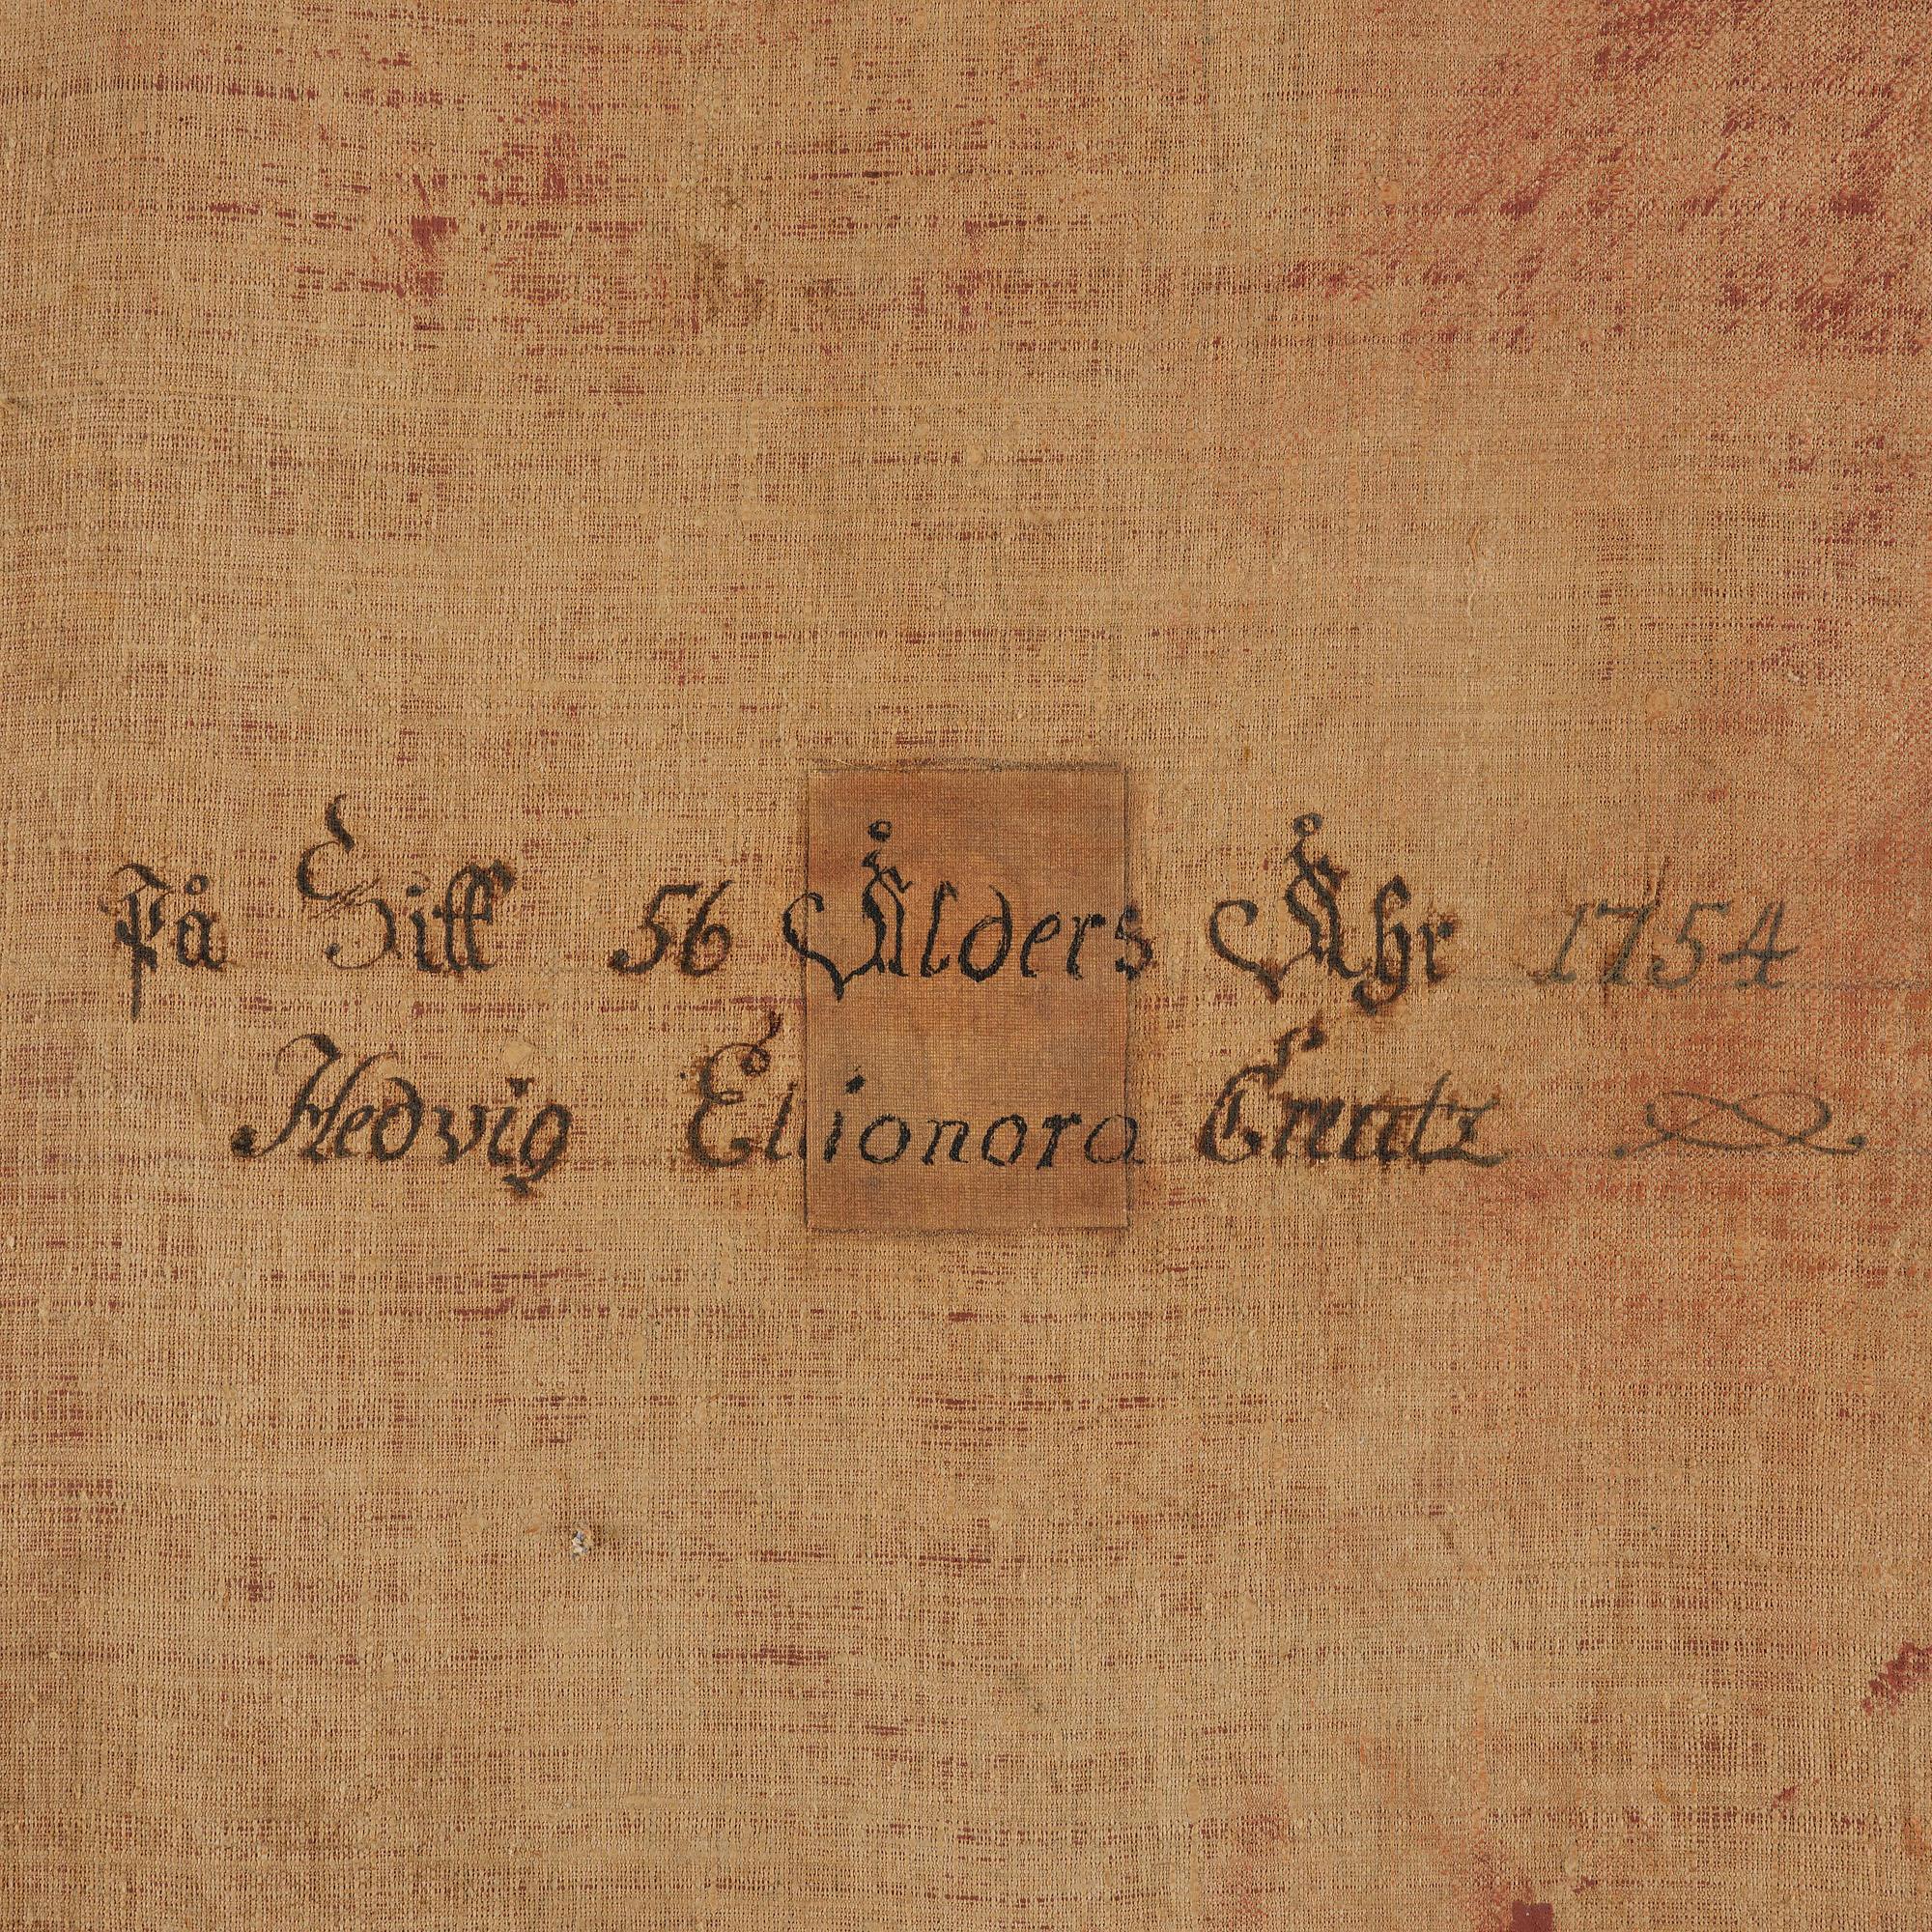 På Sitt 56 Ålders Åhr 1754
Hedvig Elionora Creutz